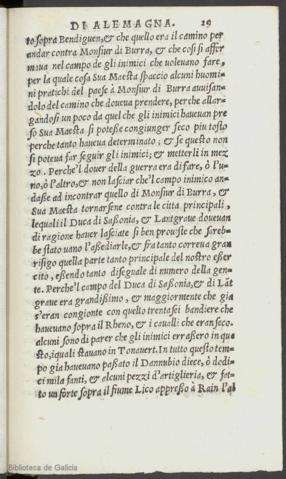 DI ALEMAGNA. 29
to sopra Bendiguen, & che quello era il camino per
andar contra Monsiur di Burra, & che cosi si affer
mava nel campo de gli inimici che voleuano fare,
per la quale cosa Sua Maesta spaccio alcuni huomi
ni pratichi del paese à Monsiur di Burra auisan-
dolo del camino che doueua prendere, perche allar-
gandosi un poco da quel che gli inimici haueuan pre
so Sua Maesta si potesse congiunger seco piu tosto
perche tanto haueua determinato; & se questo non
si poteua far seguir gli inimici; & metterli in mez
zo. Perche'l douer della guerra era di fare, ò l'u-
no, ò l'altro, & non lasciar che'l campo inimico an-
dasse ad incontrar quello di Monsiur di Burra, &
Sua Maesta tornarsene contra le citta principali,
lequali il Duca di Sassonia, & Lantgraue doueuan
di ragione hauer lasciate si ben prouiste che sareb-
be stato uano l'assediarle, & fra tanto correua gran
risigo quella parte tanto principale del nostro esser
cito, essendo tanto diseguale di numero della gen-
te. Perche'l campo del Duca di Sassonia, & di Lãt
graue era grandissimo, & maggiormente che gia
s'eran congionte con quello trentasei bandiere che
haueuano sopra il Rheno, & i caualli che eran seco.
alcuni sono di parer che gli inimici errassero in que
sto, iquali stauano in Tonauert. In tutto questo tem-
po gia haueuano passato il Dannubio diece, ò dodi-
ci mila fanti, & alcuni pezzi d'artiglieria, & fat-
to un forte sopra il fiume Lico appresso à Rain l'al
Biblioteca de Galicia